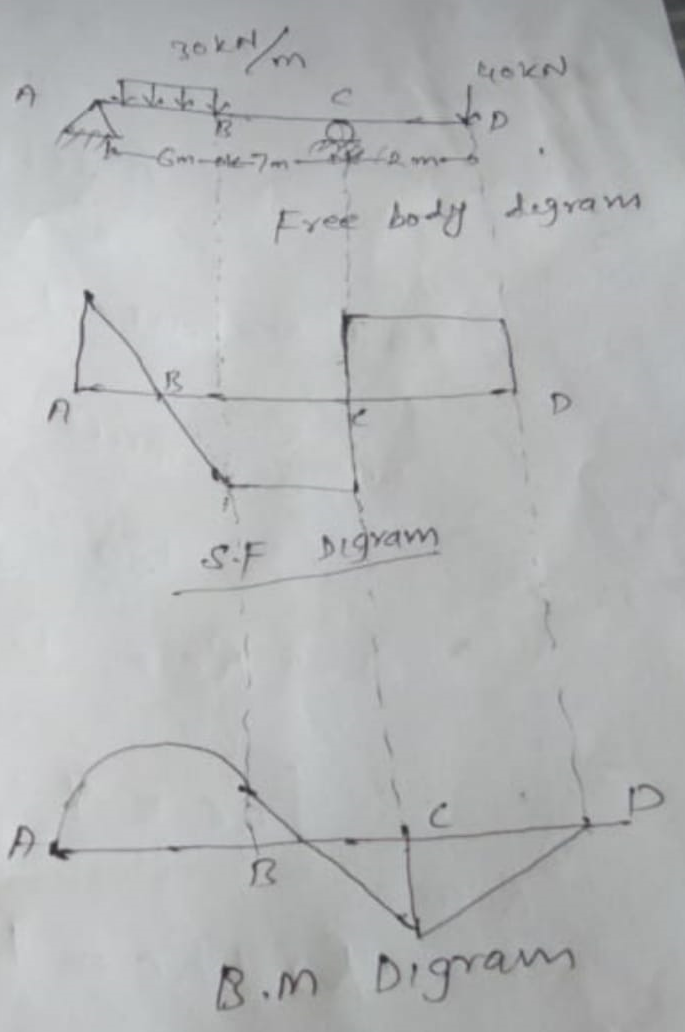 30kN/m
40KN
A
C
B
D
6m 7m 2m
Free body degram
B
A
C
D
S.F Digram
A
C
D
B
B.m Digram